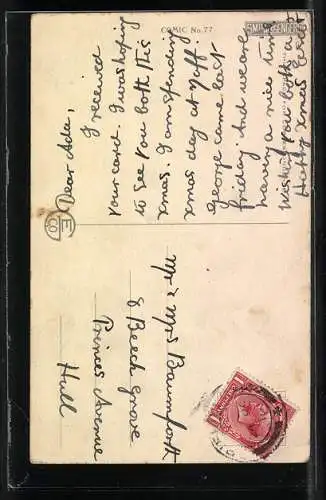 COMIC No. 77
Dear Ada,
I received
your card. I was hoping
to see you both this
xmas. I am spending
xmas day at
George came last
friday. And we are
having a nice time
wishing you both a
Happy Xmas
Mr & Mrs Baumforth
8 Beech Grove
Princes Avenue
Hull
E
CO